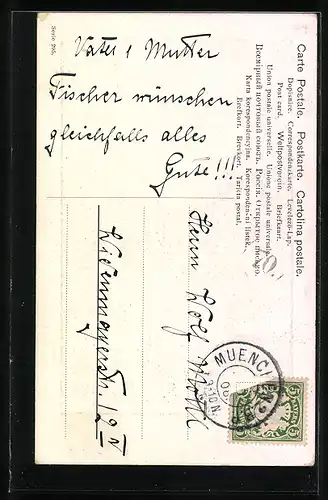 Serie 766.
Vater & Mutter
Fischer wünschen
gleichfalls alles
Gute!!!
Carte Postale. Postkarte. Cartolina postale.
Dopisnice. Correspondenzkarte. Levelező-Lap.
Post card. Weltpostverein. Briefkaart.
Union postale universelle. Unione postale universale.
Всемірный почтовый союзъ. Россія. Открытое письмо.
Karta korespondencyjna. Korespondenční lístek.
Brefkort. Brevkort. Tarjeta postal.
Herrn
Widenmayerstr.
MUENCHEN
5